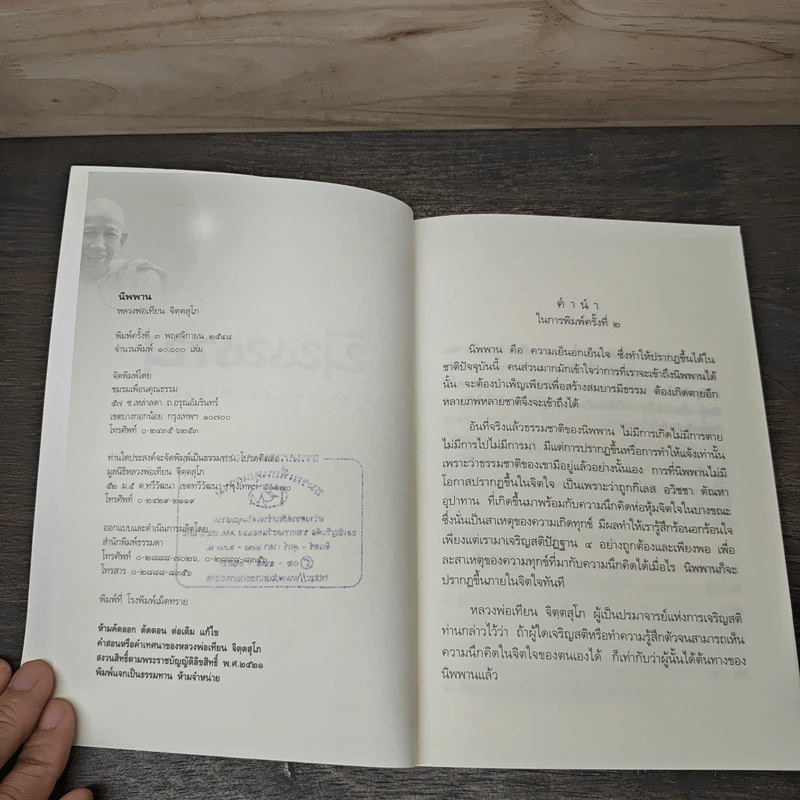 นิพพาน
หลวงพ่อเทียน จิตฺตสุโภ
พิมพ์ครั้งที่ ๓ พฤศจิกายน ๒๕๔๘
จำนวนพิมพ์ ๑๐,๐๐๐ เล่ม
จัดพิมพ์โดย
ชมรมเพื่อนคุณธรรม
๕๗ ซ.เหล่าลดา ถ.อรุณอัมรินทร์
เขตบางกอกน้อย กรุงเทพฯ ๑๐๗๐๐
โทรศัพท์ ๐-๒๔๓๕-๖๒๕๓
ท่านใดประสงค์จะจัดพิมพ์เป็นธรรมทาน โปรดติดต่อ
มูลนิธิหลวงพ่อเทียน จิตฺตสุโภ
๕๒ ม.๕ ต.ทวีวัฒนา เขตทวีวัฒนา กรุงเทพฯ
โทรศัพท์ ๐-๒๔๒๙-๒๑๑๙
ออกแบบและดำเนินการผลิตโดย
สำนักพิมพ์ธรรมดา
โทรศัพท์ ๐-๒๘๘๘-๗๐๒๖, ๐-๒๘๘๘-๘๓๕๖
โทรสาร ๐-๒๘๘๘-๘๓๕๖
พิมพ์ที่ โรงพิมพ์เม็ดทราย
ห้ามคัดลอก ตัดตอน ต่อเติม แก้ไข
คำสอนหรือคำเทศนาของหลวงพ่อเทียน จิตฺตสุโภ
สงวนสิทธิ์ตามพระราชบัญญัติลิขสิทธิ์ พ.ศ.๒๕๒๑
พิมพ์แจกเป็นธรรมทาน ห้ามจำหน่าย
คำนำ
ในการพิมพ์ครั้งที่ ๒
นิพพาน คือ ความเย็นอกเย็นใจ ซึ่งทำให้ปรากฏขึ้นได้ใน
ชาติปัจจุบันนี้ คนส่วนมากมักเข้าใจว่าการที่เราจะเข้าถึงนิพพานได้
นั้น จะต้องบำเพ็ญเพียรเพื่อสร้างสมบารมีธรรม ต้องเกิดตายอีก
หลายภพหลายชาติจึงจะเข้าถึงได้
อันที่จริงแล้วธรรมชาติของนิพพาน ไม่มีการเกิดไม่มีการตาย
ไม่มีการไปไม่มีการมา มีแต่การปรากฏขึ้นหรือการทำให้แจ้งเท่านั้น
เพราะว่าธรรมชาติของเขามีอยู่แล้วอย่างนั้นเอง การที่นิพพานไม่มี
โอกาสปรากฏขึ้นในจิตใจ เป็นเพราะว่าถูกกิเลส อวิชชา ตัณหา
อุปาทาน ที่เกิดขึ้นมาพร้อมกับความนึกคิดห่อหุ้มจิตใจในบางขณะ
ซึ่งนั่นเป็นสาเหตุของความเกิดทุกข์ มีผลทำให้เรารู้สึกร้อนอกร้อนใจ
เพียงแต่เรามาเจริญสติปัฏฐาน ๔ อย่างถูกต้องและเพียงพอ เพื่อ
ละสาเหตุของความทุกข์ที่มากับความนึกคิดได้เมื่อไร นิพพานก็จะ
ปรากฏขึ้นภายในจิตใจทันที
หลวงพ่อเทียน จิตฺตสุโภ ผู้เป็นปรมาจารย์แห่งการเจริญสติ
ท่านกล่าวไว้ว่า ถ้าผู้ใดเจริญสติหรือทำความรู้สึกตัวจนสามารถเห็น
ความนึกคิดในจิตใจของตนเองได้ ก็เท่ากับว่าผู้นั้นได้ต้นทางของ
นิพพานแล้ว